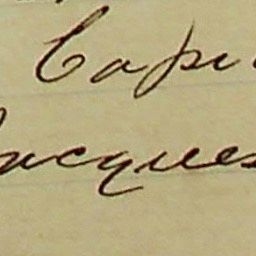 Capi
Jacques